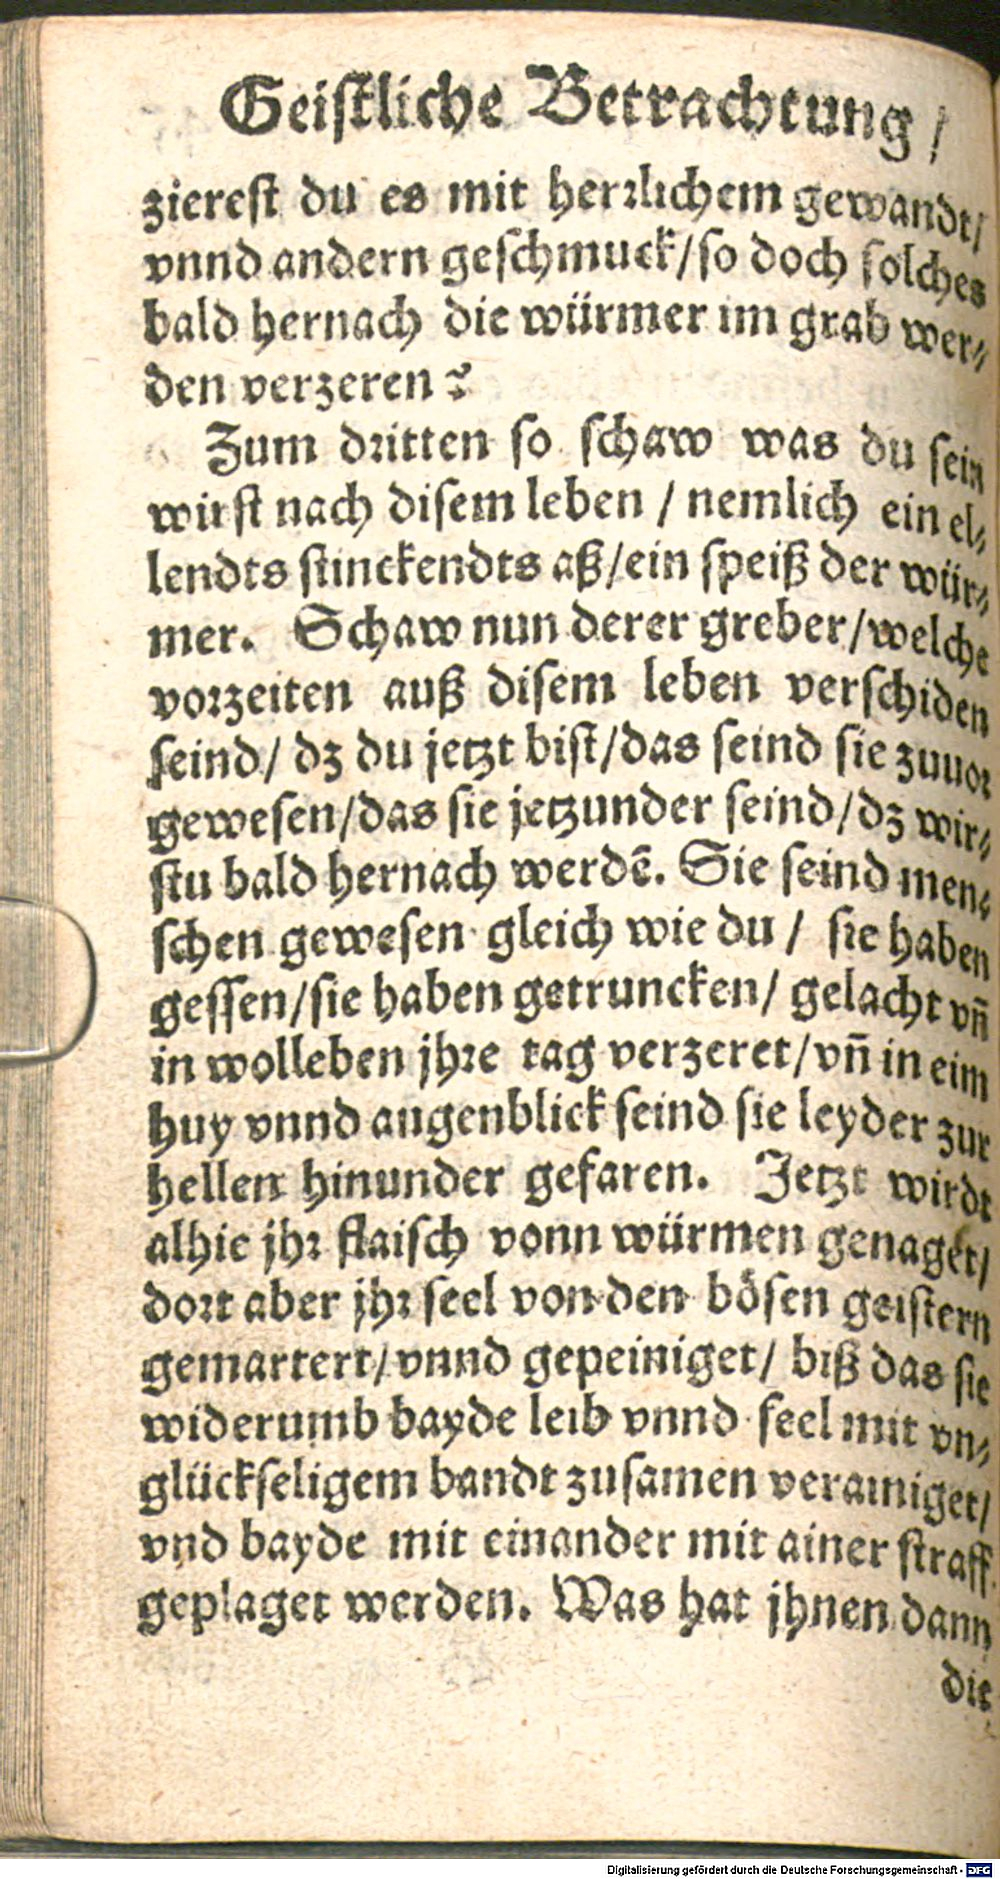 Geistliche Betrachtung /
zierest du es mit herrlichem gewandt/
vnnd andern geschmuck/so doch solches
bald hernach die würmer im grab wer⸗
den verzeren?
Zum dritten so schaw was du sein
wirst nach disem leben / nemlich ein el⸗
lendts stinckendts aß/ein speiß der wür⸗
mer. Schaw nun derer greber/welche
vorzeiten auß disem leben verschiden
seind/ dz du jetzt bist/das seind sie zuuor
gewesen/das sie jetzunder seind/dz wir⸗
stu bald hernach werdē. Sie seind men⸗
schen gewesen gleich wie du / sie haben
gessen/sie haben getruncken/ gelacht vn̄
in wolleben jhre tag verzeret/vn̄ in eim
huy vnnd augenblick seind sie leyder zur
hellen hinunder gefaren. Jetzt wirdt
alhie jhr flaisch vonn würmen genaget/
dort aber jhr seel von den bösen geistern
gemartert/vnnd gepeiniget/ biß das sie
widerumb bayde leib vnnd seel mit vn⸗
glückseligem bandt zusamen verainiget/
vnd bayde mit einander mit ainer straff
geplaget werden. Was hat jhnen dann
die
Digitalisierung gefördert durch die Deutsche Forschungsgemeinschaft - DFG